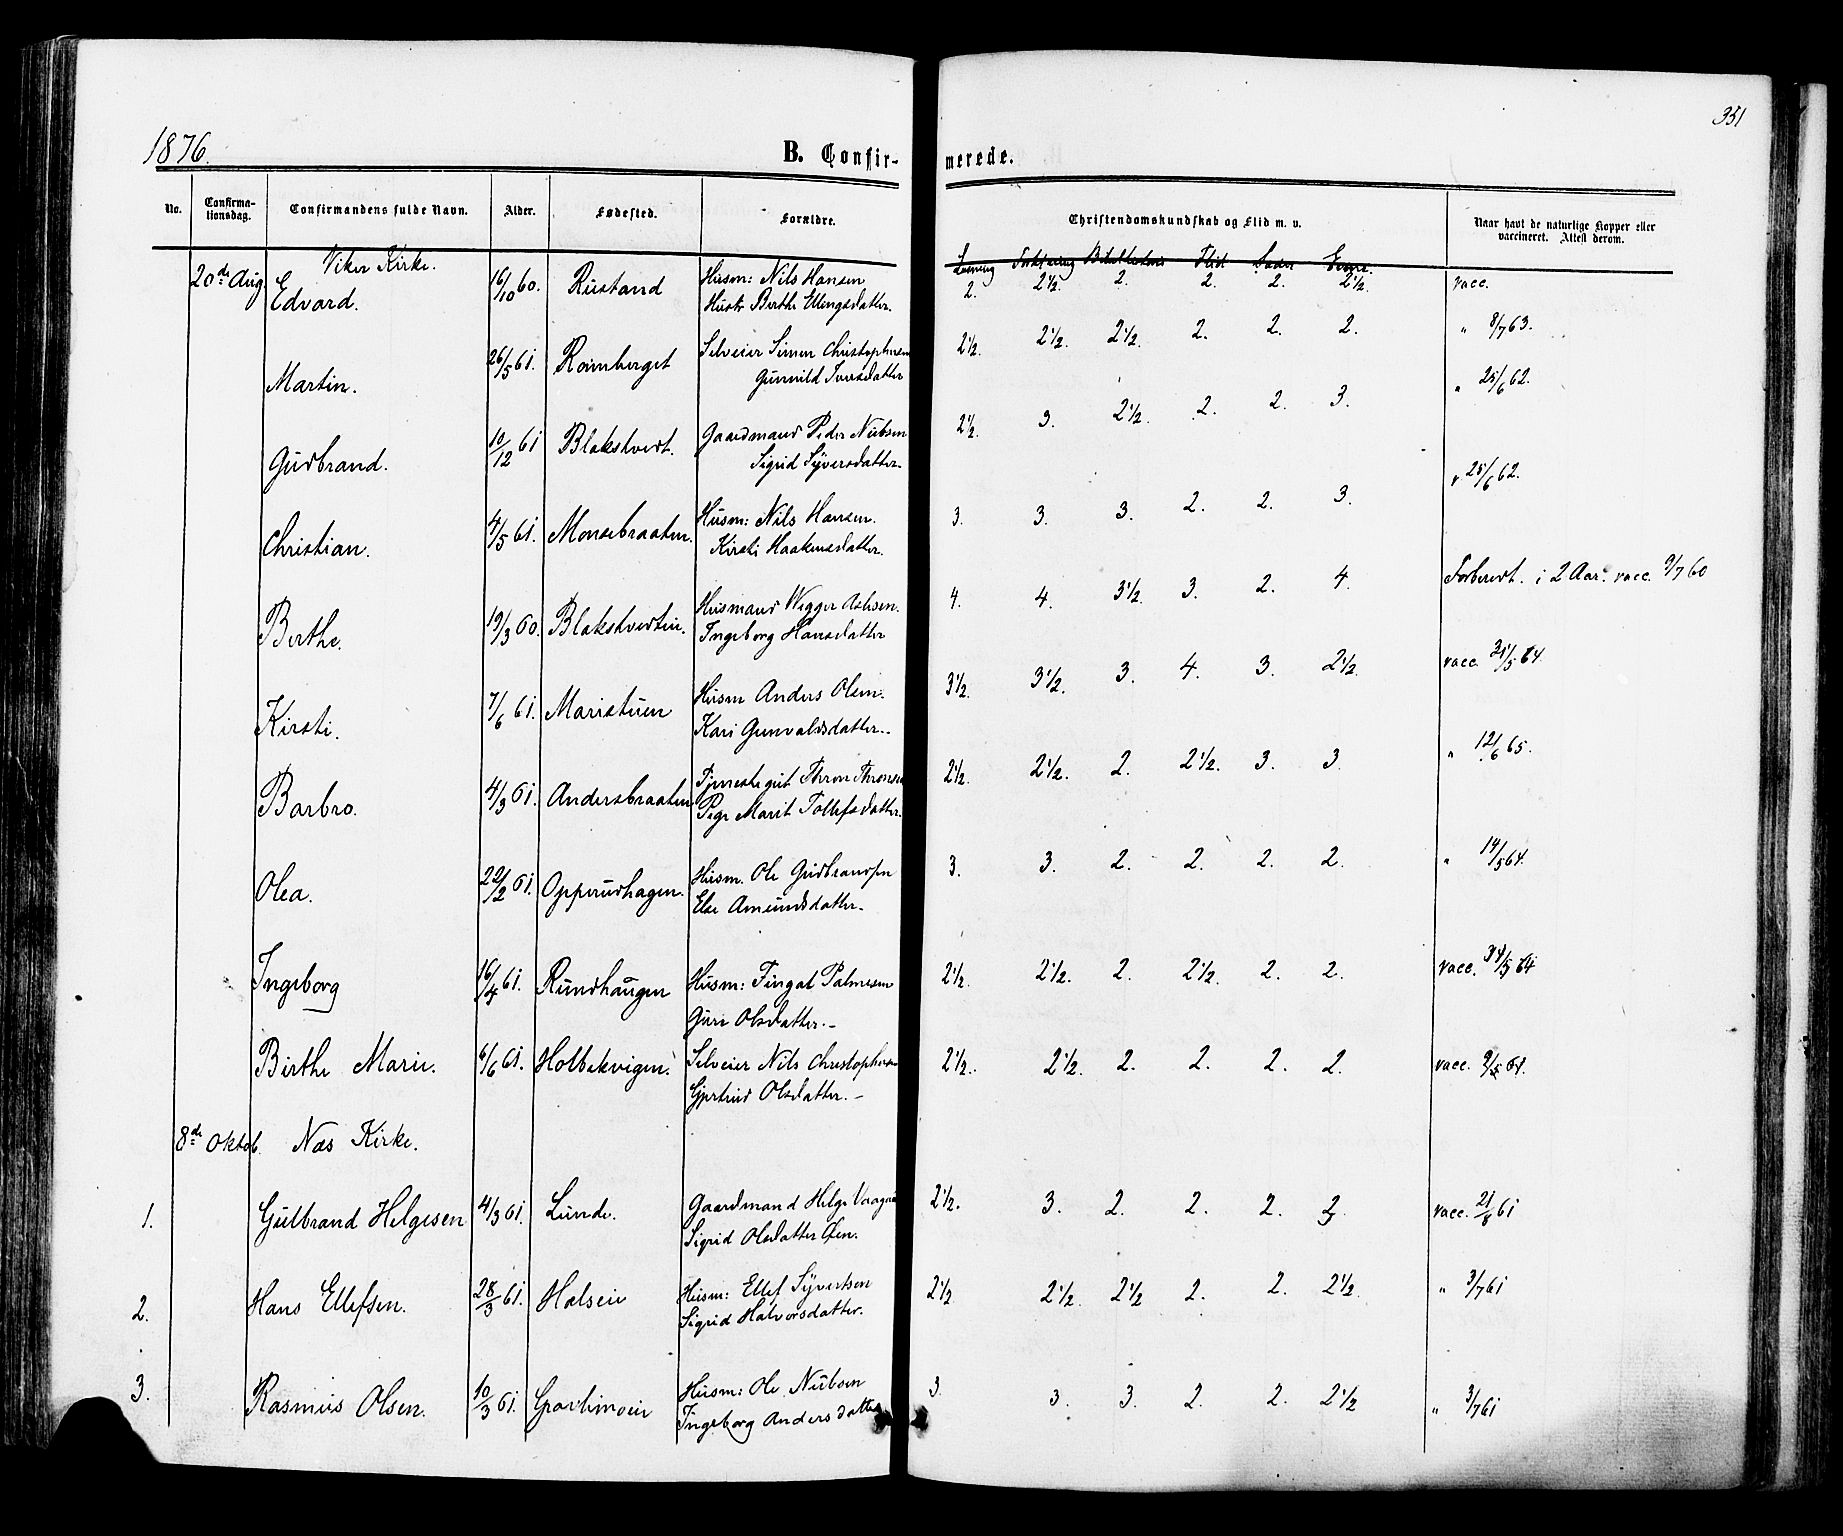 351
1876.
B. Confir-
merede.
No.
Confirma-
tionsdag.
Confirmandens fulde Navn.
Alder.
Fødested.
Forældre.
Christendomskundskab og Flid m. v.
Naar havt de naturlige Kopper eller
vaccineret. Attest derom.
Læsning Forklaring Flid Evner.
20de Aug Viker Kirke.
Edvard. 16/10 60. Rustand Husm: Nils Hansen 2. 2½. 2. 2. 2. 2½. vacc.
Hustr Berthe Ellengsdatter. " 8/7 63.
Martin. 26/5 61. Romberget Selveier Simen Christophersen 2½. 2½. 2½. 2. 2. 2.
Gunnild Iversdatter " 25/6 62.
Gudbrand. 10/12 61 Blakstvedt. Gaardmand Peder Nubsen 2½. 3. 2½. 2. 2. 3.
Sigrid Syversdatter. " 25/6 62.
Christian. 4/5 61. Monsebraaten. Husm: Nils Hansen. 3. 3. 3. 2. 2. 3.
Kirsti Haakensdatter.
Berthe. 19/3 60. Blakstvedtei. Husmand Wegger Aslesen. 4. 4. 3½. 3. 2. 4. Forberedt. i 2 Aar. vacc. 9/7 60
Ingeborg Hansdatter
Kirsti. 7/6 61. Maristuen Husm Anders Olsen. 3½. 3½. 3. 4. 3. 2½. vacc. 31/5 64.
Kari Gunvaldsdatter.
Barbro. 4/3 61. Andersbraaten Tjenestegut Thron Thronsen 2½. 2½. 2. 2½. 3. 3. " 12/6 65.
Pige Marit Tollefsdatter.
Olea. 22/2 61. Opperudhagen. Husm. Ole Gudbrandsen 3. 3. 2. 2. 2. 2. " 14/5 64.
Else Amundsdatter.
Ingeborg 16/4 61. Rundhaugen Husm: Fingal Palmesen 2½. 2½. 2. 2½. 2. 2. vacc. 31/5 64
Guri Olsdatter.
Birthe Marie. 6/6 61. Holbekvigen. Selveier Nils Christophersen 2½. 2½. 2. 2. 2. 2. vacc. 9/5 64.
Gjertrud Olsdatter.
8de Oktob. Næs Kirke.
1. Gulbrand Helgesen 4/3 61. Lunde. Gaardmand Helge Vaagaa 2½. 3. 2. 2. 2. vacc. 21/8 61
Sigrid Olsdatter
2. Hans Ellefsen. 28/3 61. Halseie Husm: Ellef Syvertsen 2½. 2½. 2½ 2. 2. 2½. " 3/7 61
Sigrid Halvorsdatter.
3. Rasmus Olsen. 10/3 61. Husm: Ole Nubsen 3. 3. 3. 2. 2. 2½ " 3/7 61
Ingeborg Andersdatter